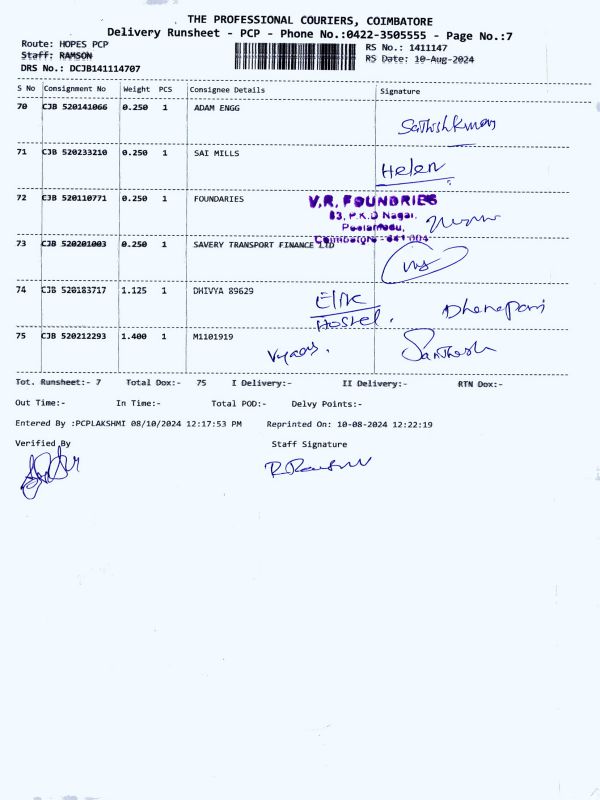 THE PROFESSIONAL COURIERS, COIMBATORE
Delivery Runsheet - PCP - Phone No.:0422-3505555 - Page No.:7
Route: HOPES PCP
RS No.: 1411147
Staff: RAMSON
RS Date: 10-Aug-2024
DRS No.: DCJB141114707
S No Consignment No Weight PCS Consignee Details Signature
70 CJB 520141066 0.250 1 ADAM ENGG
Sathishkumar
71 CJB 520233210 0.250 1 SAI MILLS
Helen
72 CJB 520110771 0.250 1 FOUNDARIES
V.R. FOUNDRIES
83, P.K.D Nagar,
Peelamedu,
Coimbatore - 641 004
73 CJB 520201003 0.250 1 SAVERY TRANSPORT FINANCE LTD
74 CJB 520183717 1.125 1 DHIVYA 89629
Hostel.
75 CJB 520212293 1.400 1 M1101919
Santhosh
Tot. Runsheet:- 7 Total Dox:- 75 I Delivery:- II Delivery:- RTN Dox:-
Out Time:- In Time:- Total POD:- Delvy Points:-
Entered By :PCPLAKSHMI 08/10/2024 12:17:53 PM Reprinted On: 10-08-2024 12:22:19
Verified By Staff Signature